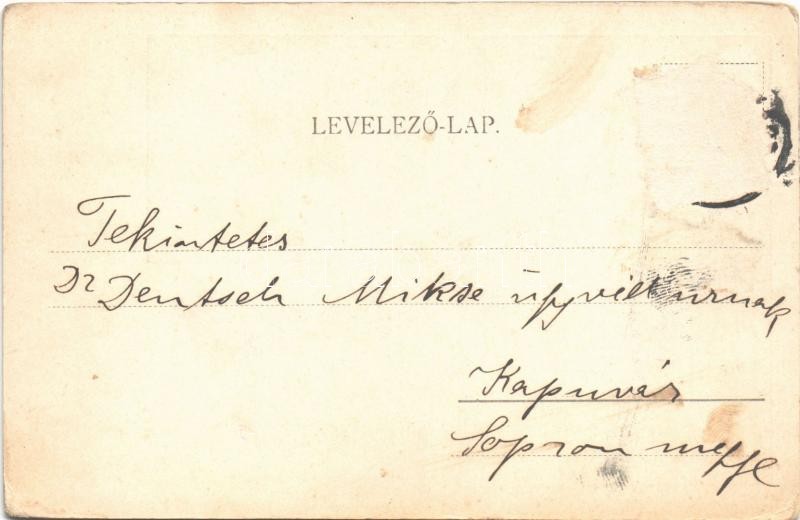 LEVELEZŐ-LAP.
Tekintetes
Dr Deutsch Mikse ügyvéd urnak
Kapuvár
Sopron megye